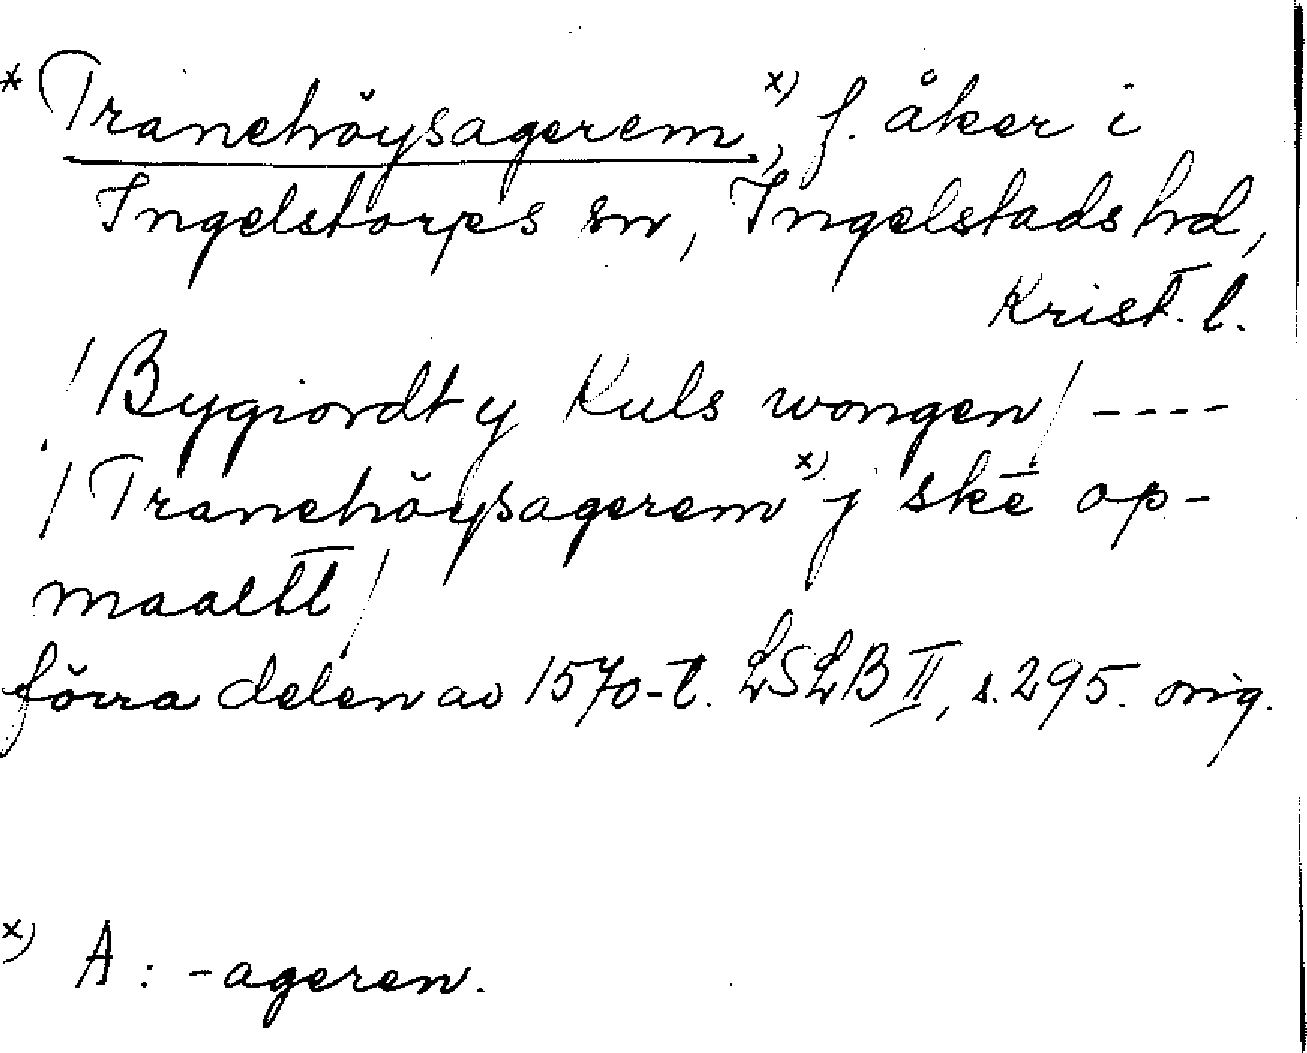 * Tranehöysagerem x), f. åker i
Ingelstorps sn, Ingelstads hd,
Krist. l.
/ Bygiordt y Kuls wongen / ----
/ Tranehöysagerem x) j skē op-
maaltt /
förra delen av 1570-t. LSLB II, s. 295. orig.
x) A: -ageren.